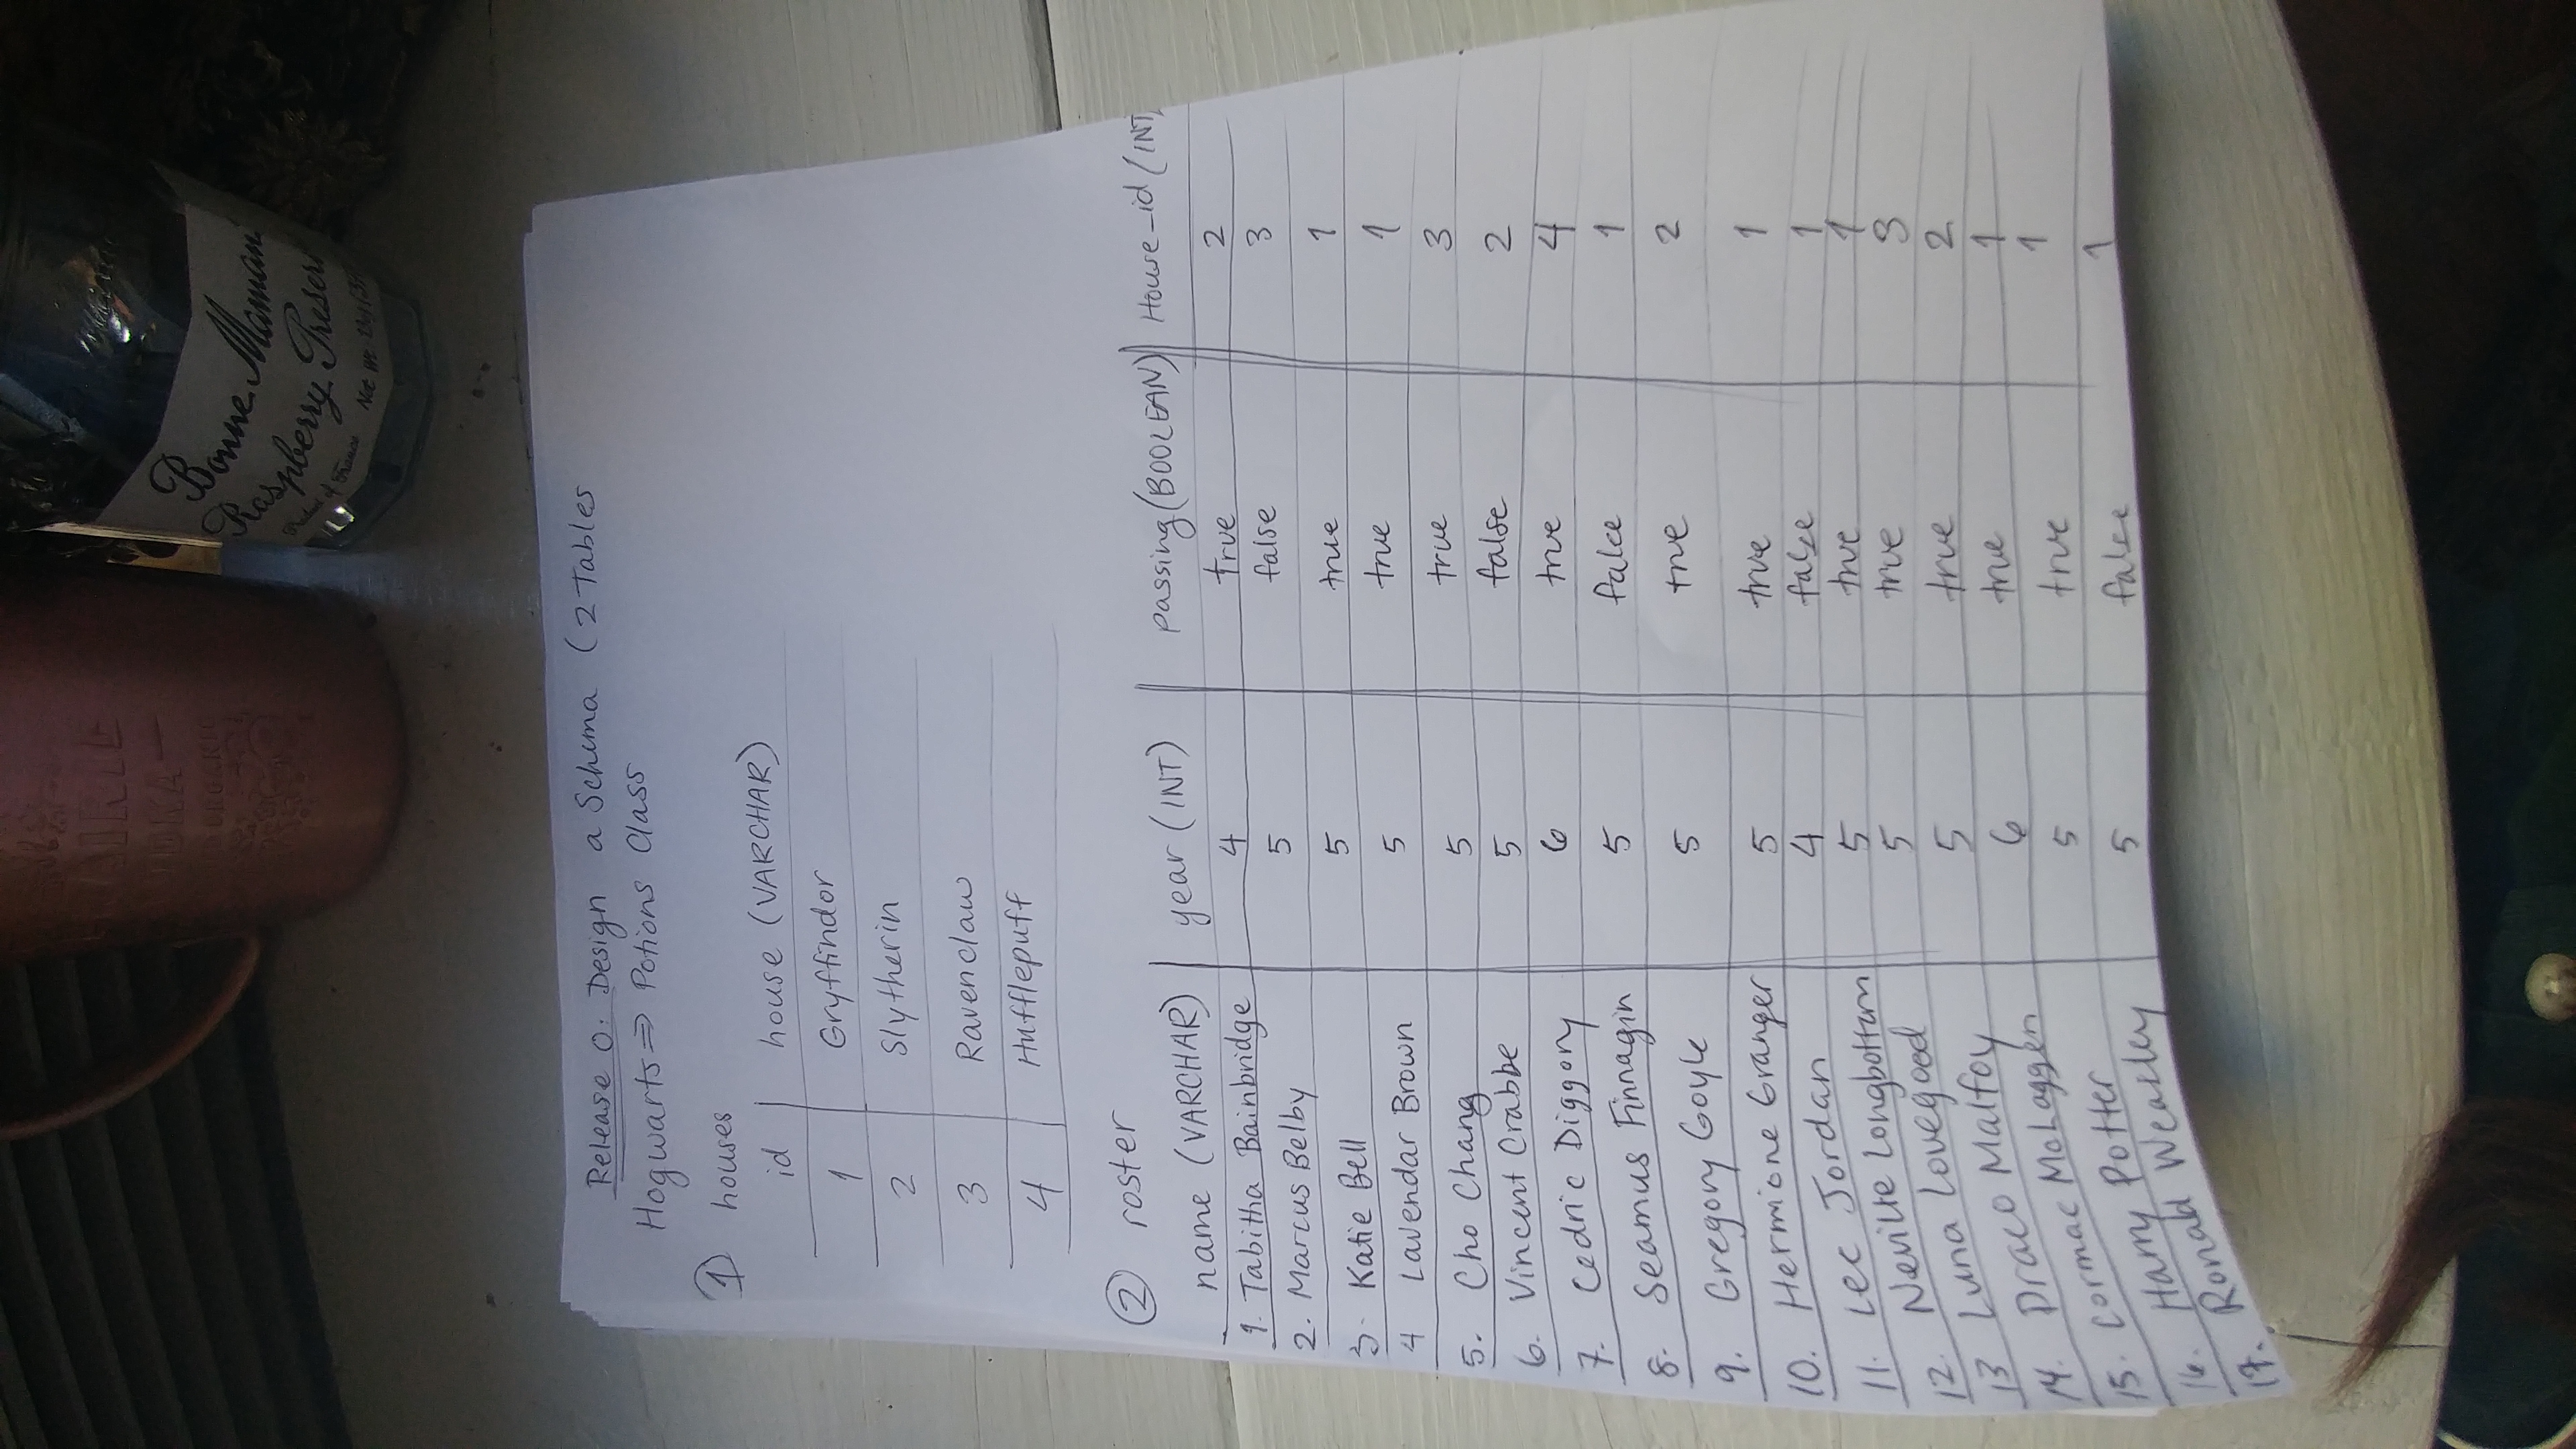 AIRIE
DKA
ORGANIC
Bonne Maman
Raspberry Preser
Product of France
Net Wt
Release 0: Design a Schema (2 Tables
Hogwarts ⇒ Potions Class
1 houses
id house (VARCHAR)
1 Gryffindor
2 Slytherin
3 Ravenclaw
4 Hufflepuff
2 roster
name (VARCHAR) year (INT) passing (BOOLEAN) House_id (INT
1. Tabitha Bainbridge 4 true 2
2. Marcus Belby 5 false 3
3. Katie Bell 5 true 1
4 Lavendar Brown 5 true 1
5. Cho Chang 5 true 3
6. Vincent Crabbe 5 false 2
7. Cedric Diggory 6 true 4
8. Seamus Finnagin 5 false 1
9. Gregory Goyle 5 true 2
10. Hermione Granger 5 true 1
11. Lee Jordan 4 false 1
12. Neville Longbottom 5 true 1
13 Luna Lovegood 5 true 3
14. Draco Malfoy 5 true 2
15. Cormac McLaggen 6 true 1
16. Harry Potter 5 true 1
17. Ronald Weasley 5 false 1